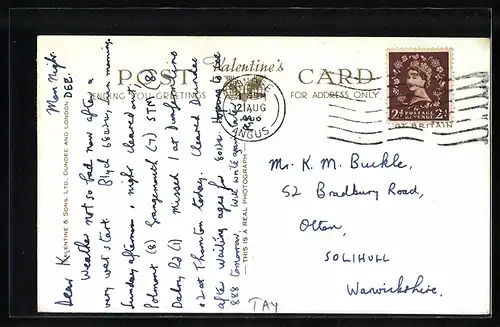 POST Valentine's CARD
SENDING YOU GREETINGS
FOR ADDRESS ONLY
21 AUG
ANGUS
2d POSTAGE REVENUE 2d
Mon Night.
DEE.
Dear K
Weather not so bad now after a
very wet start. Blyth
Sunday afternoon, & night cleared out.
Polmont (8) Grangemouth (7) STM (8)
Dalry Rd (1) Missed 1 at Dunfermline
& 2 at Thornton today. Cleared Dundee
after waiting ages for Hoping to see
888 tomorrow. Will write again
VALENTINE & SONS, LTD. DUNDEE AND LONDON.
— THIS IS A REAL PHOTOGRAPH —
TAY
Mr. K. M. Buckle,
52 Bradbury Road,
Olton,
SOLIHULL
Warwickshire.